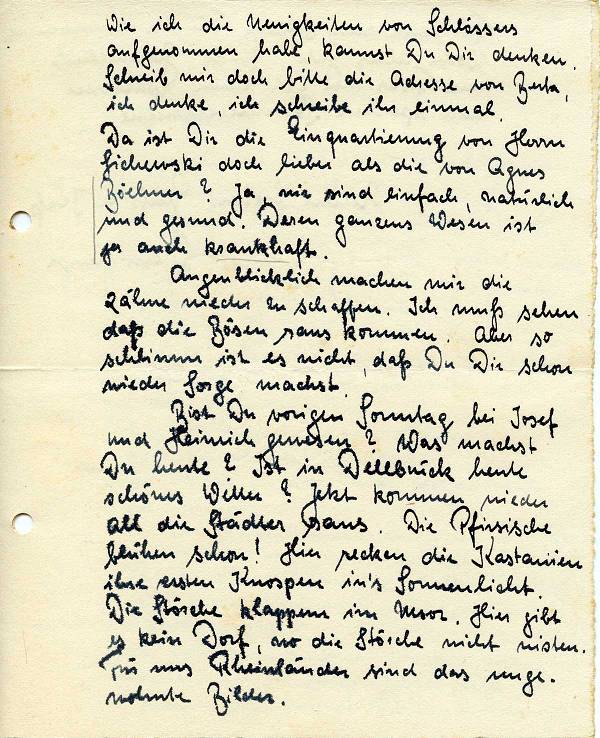 Wie ich die Neuigkeiten von Schlössers
aufgenommen habe, kannst Du Dir denken.
Schreib mir doch bitte die Adresse von Berta,
ich denke, ich schreibe ihr einmal.
Da ist Dir die Einquartierung von Herrn
Gichewski doch lieber als die von Agnes
Böhmer? Ja, wir sind einfach, natürlich
und gesund. Deren ganzes Wesen ist
ja auch krankhaft.
Augenblicklich machen mir die
Zähne wieder zu schaffen. Ich muß sehen
daß die Bösen raus kommen. Aber so
schlimm ist es nicht, daß Du Dir schon
wieder Sorge machst.
Bist Du vorigen Sonntag bei Josef
und Heinrich gewesen? Was machst
Du heute? Ist in Dellbrück heute
schönes Wetter? Jetzt kommen wieder
all die Städter raus. Die Pfirsische
blühen schon! Hier recken die Kastanien
ihre ersten Knospen in's Sonnenlicht.
Die Störche klappern im Moor. Hier gibt
es kein Dorf, wo die Störche nicht nisten.
Für uns Rheinländer sind das unge-
wohnte Bilder.